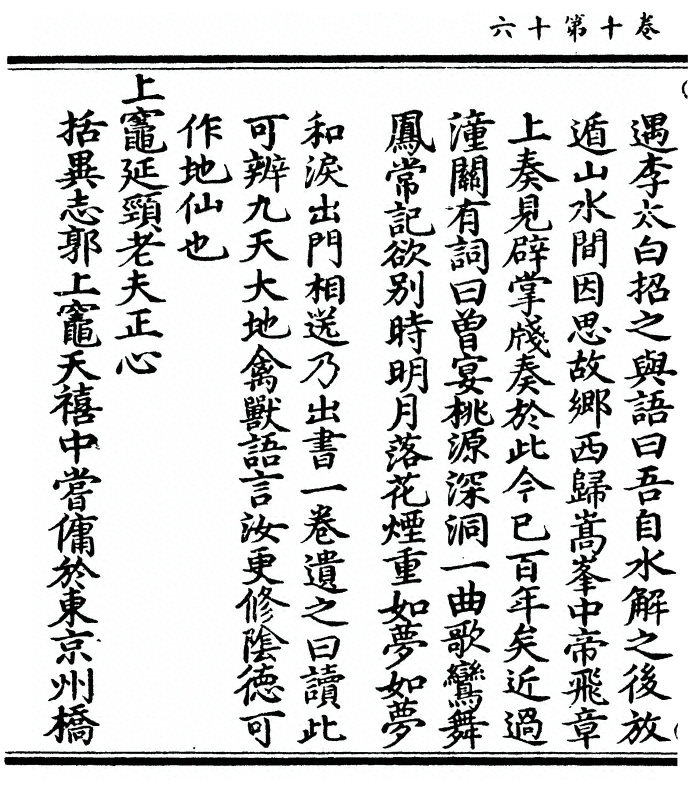 卷十第十六
遇李太白招之與語曰吾自水解之後放
遁山水間因思故鄉西歸嵩峯中帝飛章
上奏見辟掌牋奏於此今已百年矣近過
潼關有詞曰曾宴桃源深洞一曲歌鸞舞
鳳常記欲別時明月落花煙重如夢如夢
和淚出門相送乃出書一卷遺之曰讀此
可辨九天大地禽獸語言汝更修陰德可
作地仙也
上竈延頸老夫正心
括異志郭上竈天禧中嘗傭於東京州橋